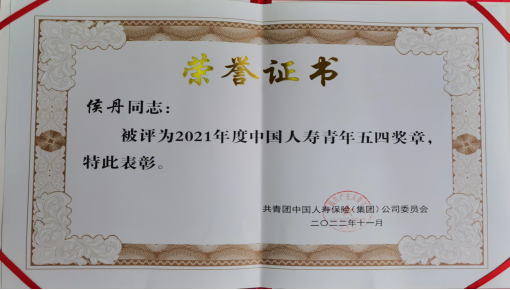 荣誉证书
侯丹同志：
被评为2021年度中国人寿青年五四奖章，
特此表彰。
共青团中国人寿保险（集团）公司委员会
二〇二二年十一月